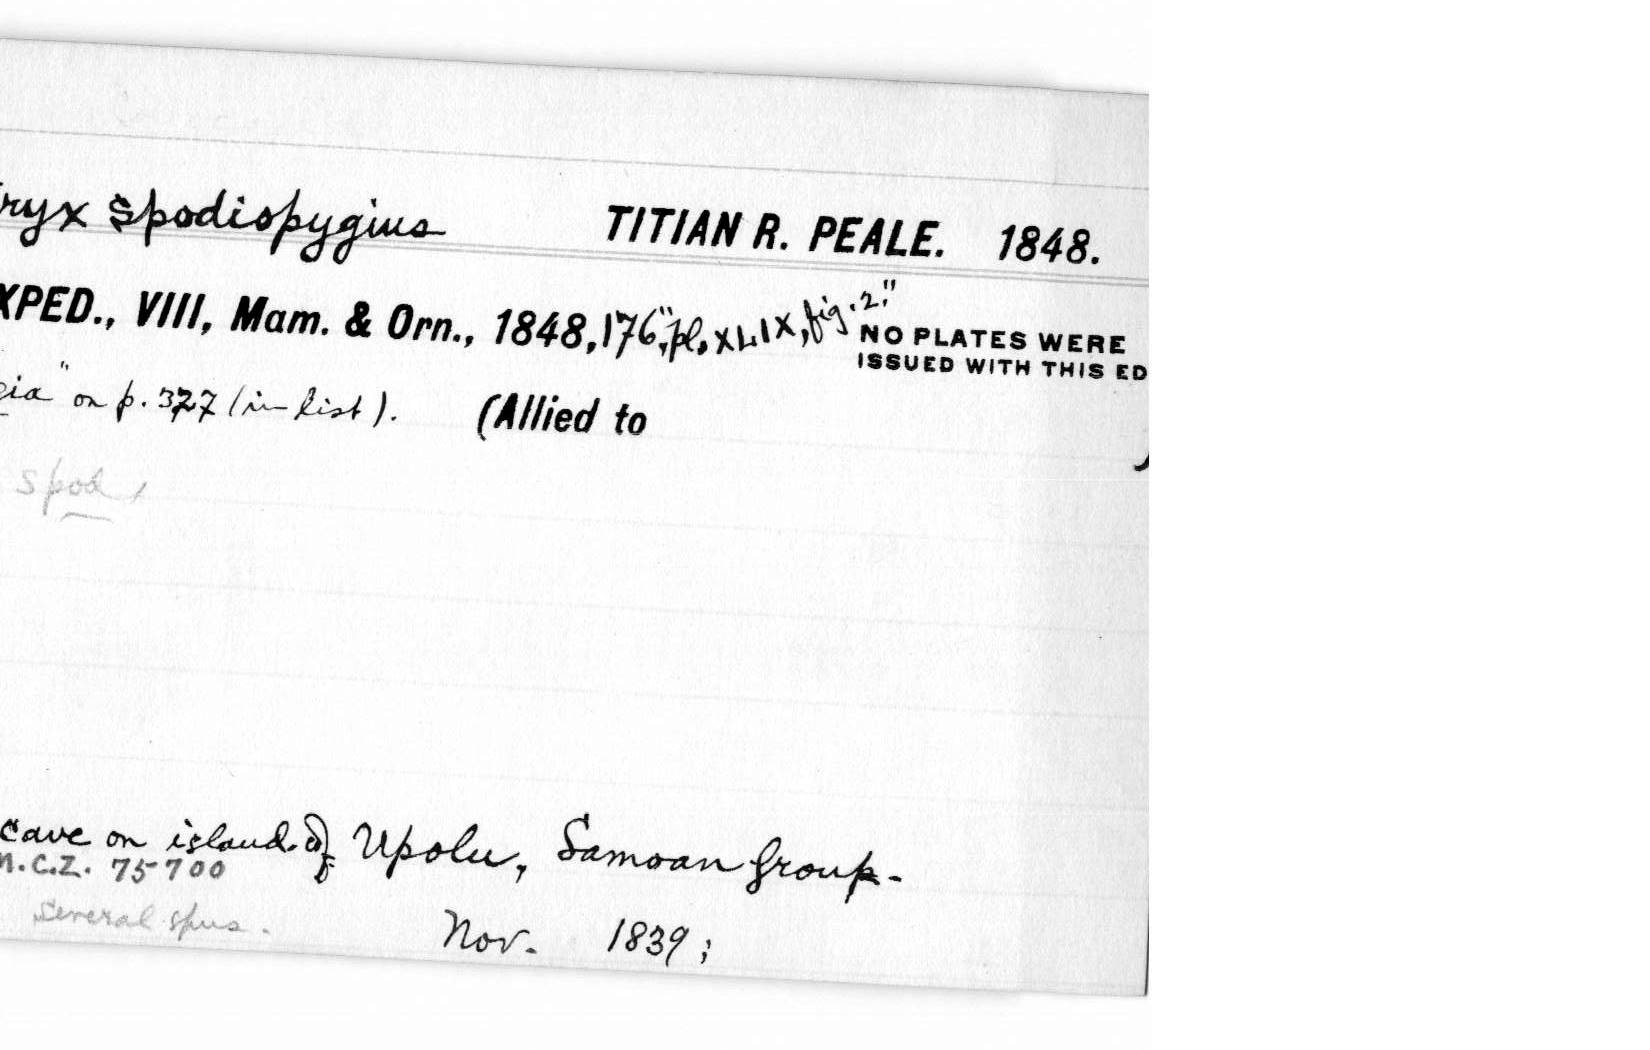 ryx Spodiopygius TITIAN R. PEALE. 1848.
XPED., VIII, Mam. & Orn., 1848, 176, "pl. XLIX, fig. 2."
NO PLATES WERE
ISSUED WITH THIS ED
gia" on p. 327 (in list). (Allied to )
Spod.
cave on island of Upolu, Samoan Group.
M.C.Z. 75700
Several spns. Nov. 1839;